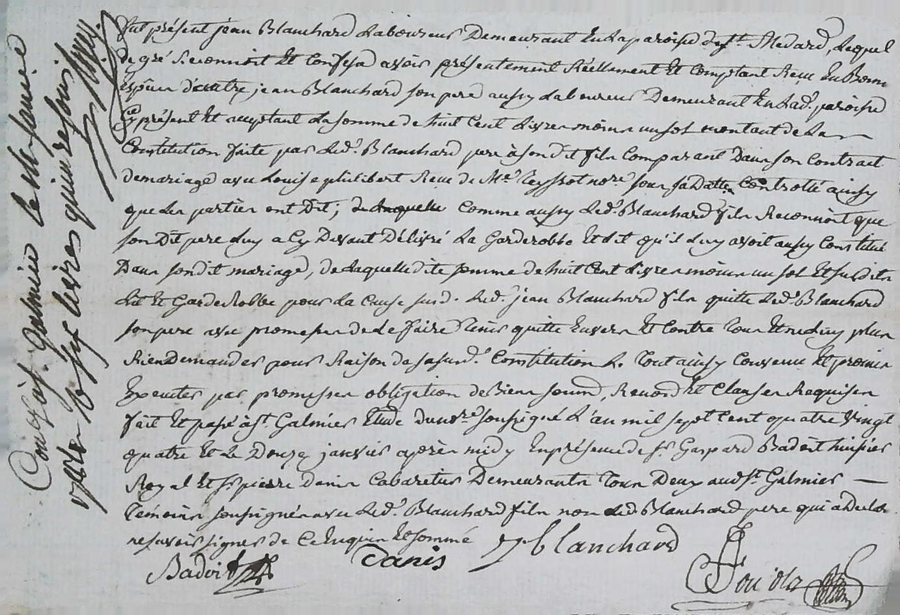 fut présent jean Blanchard Laboureur Demeurant En La paroisse de st. Medard, Lequel
de gré Reconnoit Et Confesse avoir présentement Réellement Et Comptant Reçu En Bonne
Espèce d'autre jean Blanchard son pere aussy Laboureur Demeurant En Lad. paroisse
Cy présent Et acceptant La somme de huit Cent Livres moins un sol montant de La
Constitution faite par Led. Blanchard pere à son dit fils Comparant Dans son Contrat
de mariage avec Louise philibert Reçu de Me. Teyssot nore. sous sa Datte Controllé ainsy
que Les parties ont Dit; Comme aussy Led. Blanchard fils Reconnoit que
son Dit pere Luy a Cy Devant Délivré La Garderobbe Et Lit qu'il Luy avoit aussy Constitué
Dans son dit mariage, de Laquelle dite somme de huit Cent Livres moins un sol Et susdits
Lit Et Garde Robbe pour La Cause susd. Led. jean Blanchard fils quitte Led. Blanchard
son pere avec promesse de Le faire Tenir quitte Envers Et Contre Tous Et ne Luy plus
Rien Demander pour Raison de sa susd. Constitution Le Tout ainsy Convenu Et promis
Executer par promesses obligation de Biens soumd. Renond. Et Clauses Requises
fait Et passé à st. Galmier Etude du nore. soussigné L'an mil sept Cent quatre vingt
quatre Et Le Douze janvier après midy En présence de sr. Gaspard Badoit huissier
Royal Et sr. pierre Danis Cabaretier Demeurants Tous Deux aud. st. Galmier
Témoins soussignés avec Led. Blanchard fils non Led. Blanchard pere qui a declaré
ne savoir signer de Ce Enquis Et sommé
Badoit Danis J blanchard
Conlé à st. Galmier le janvier
1784 Reçu six livres quinze sols